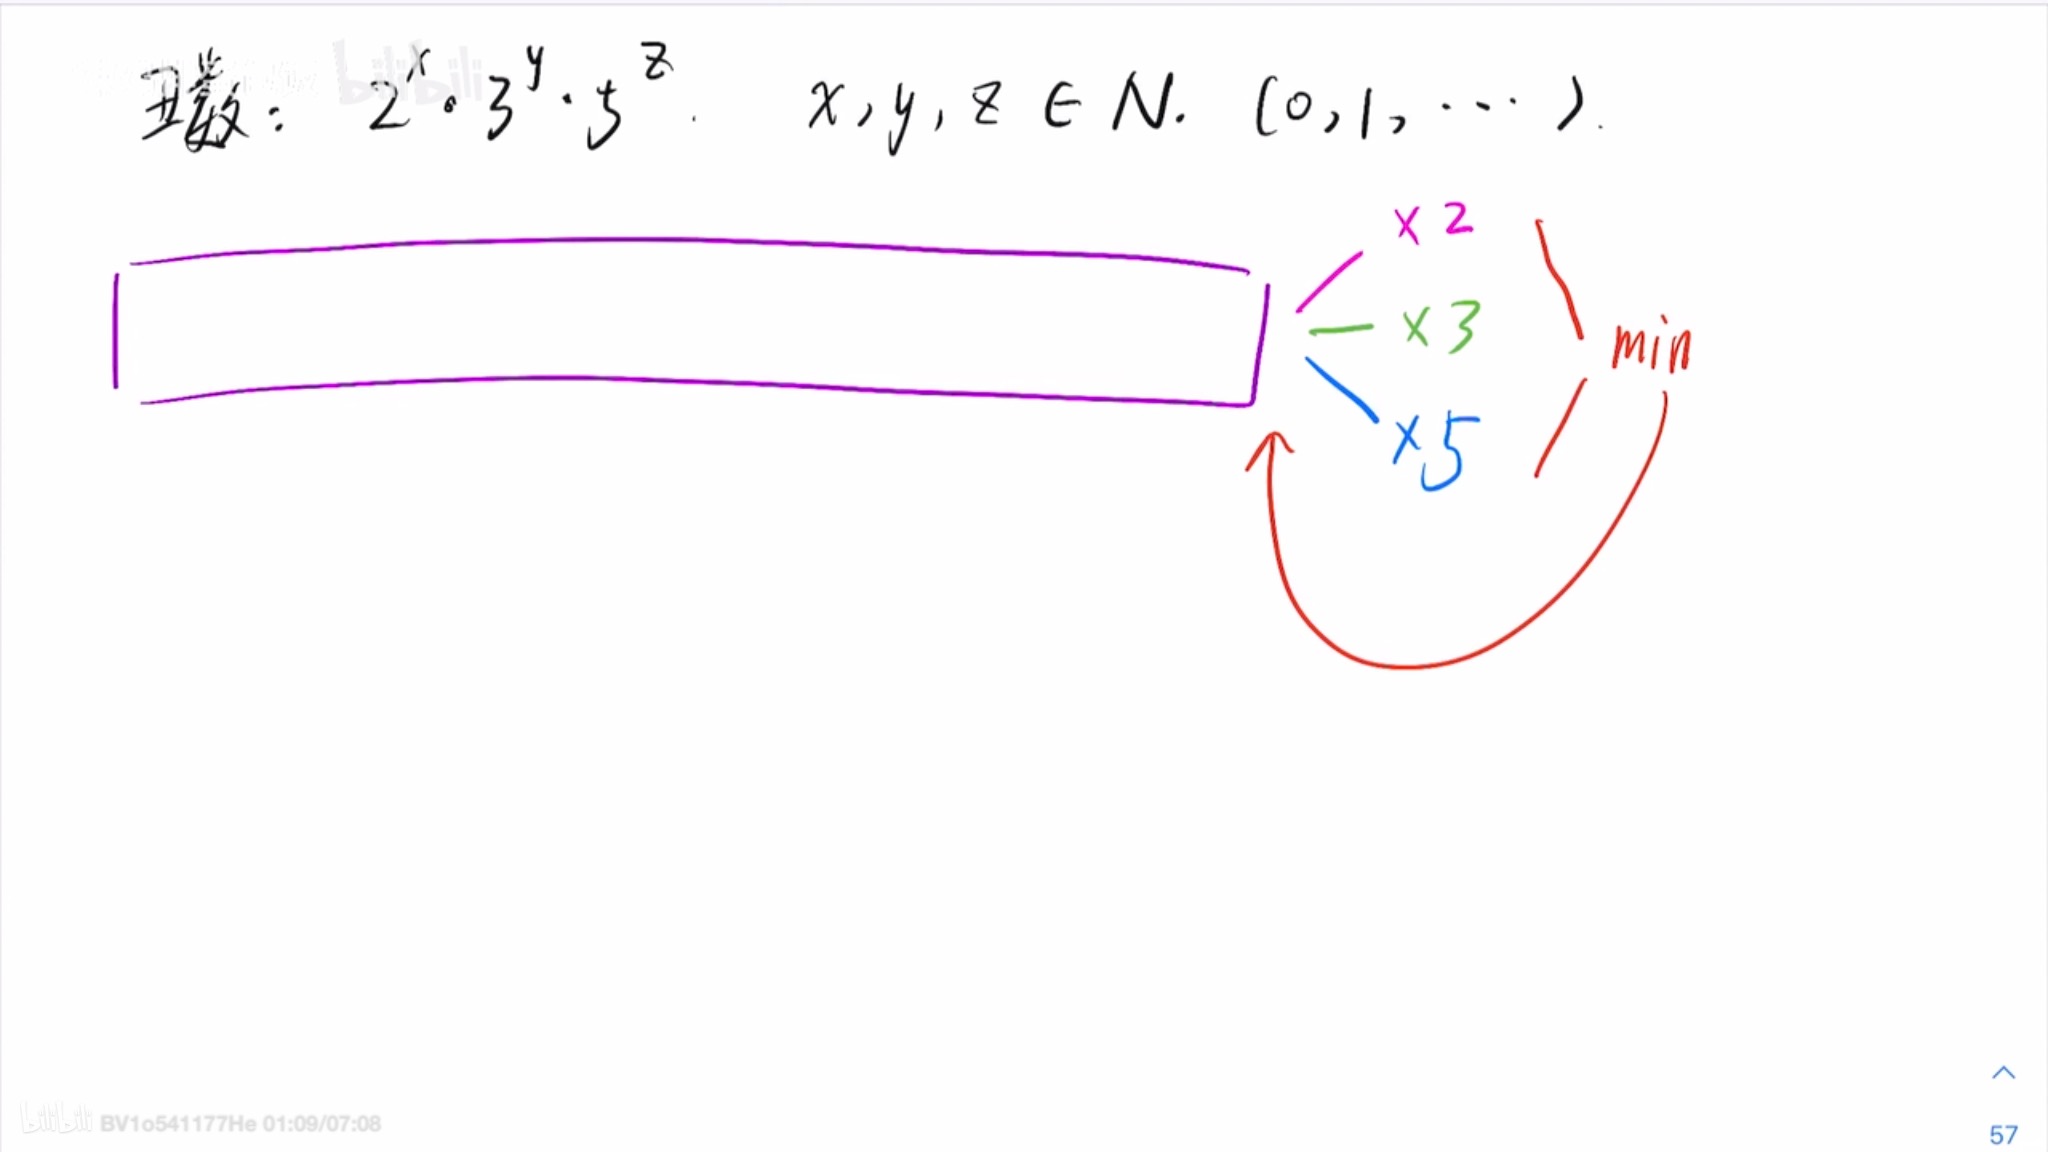 丑数: 2^x · 3^y · 5^z. x, y, z ∈ N. (0, 1, ···).
×2
×3
min
×5
bilibili
bilibili BV1o541177He 01:09/07:08
57